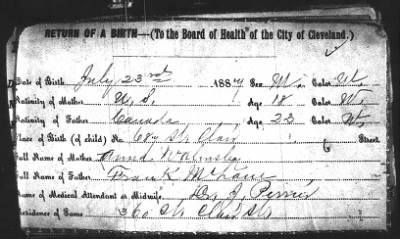 RETURN OF A BIRTH—(To the Board of Health of the City of Cleveland.)
Date of Birth July 23rd 1887 Sex M. Color W.
Nativity of Mother U. S. Age 18 Color W.
Nativity of Father Canada Age 23 Color W.
Place of Birth (of child) No. 687 St Clair Street
Full Name of Mother Walmsley
Full Name of Father Frank
Name of Medical Attendant or Midwife, Dr. J.
Residence of Same St Clair St